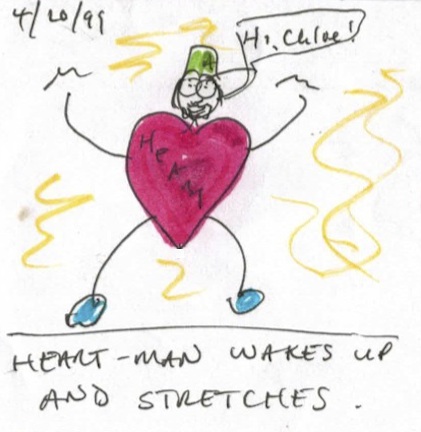 4/20/99
Hi, Chloe!
HEAM
HEART-MAN WAKES UP
AND STRETCHES.